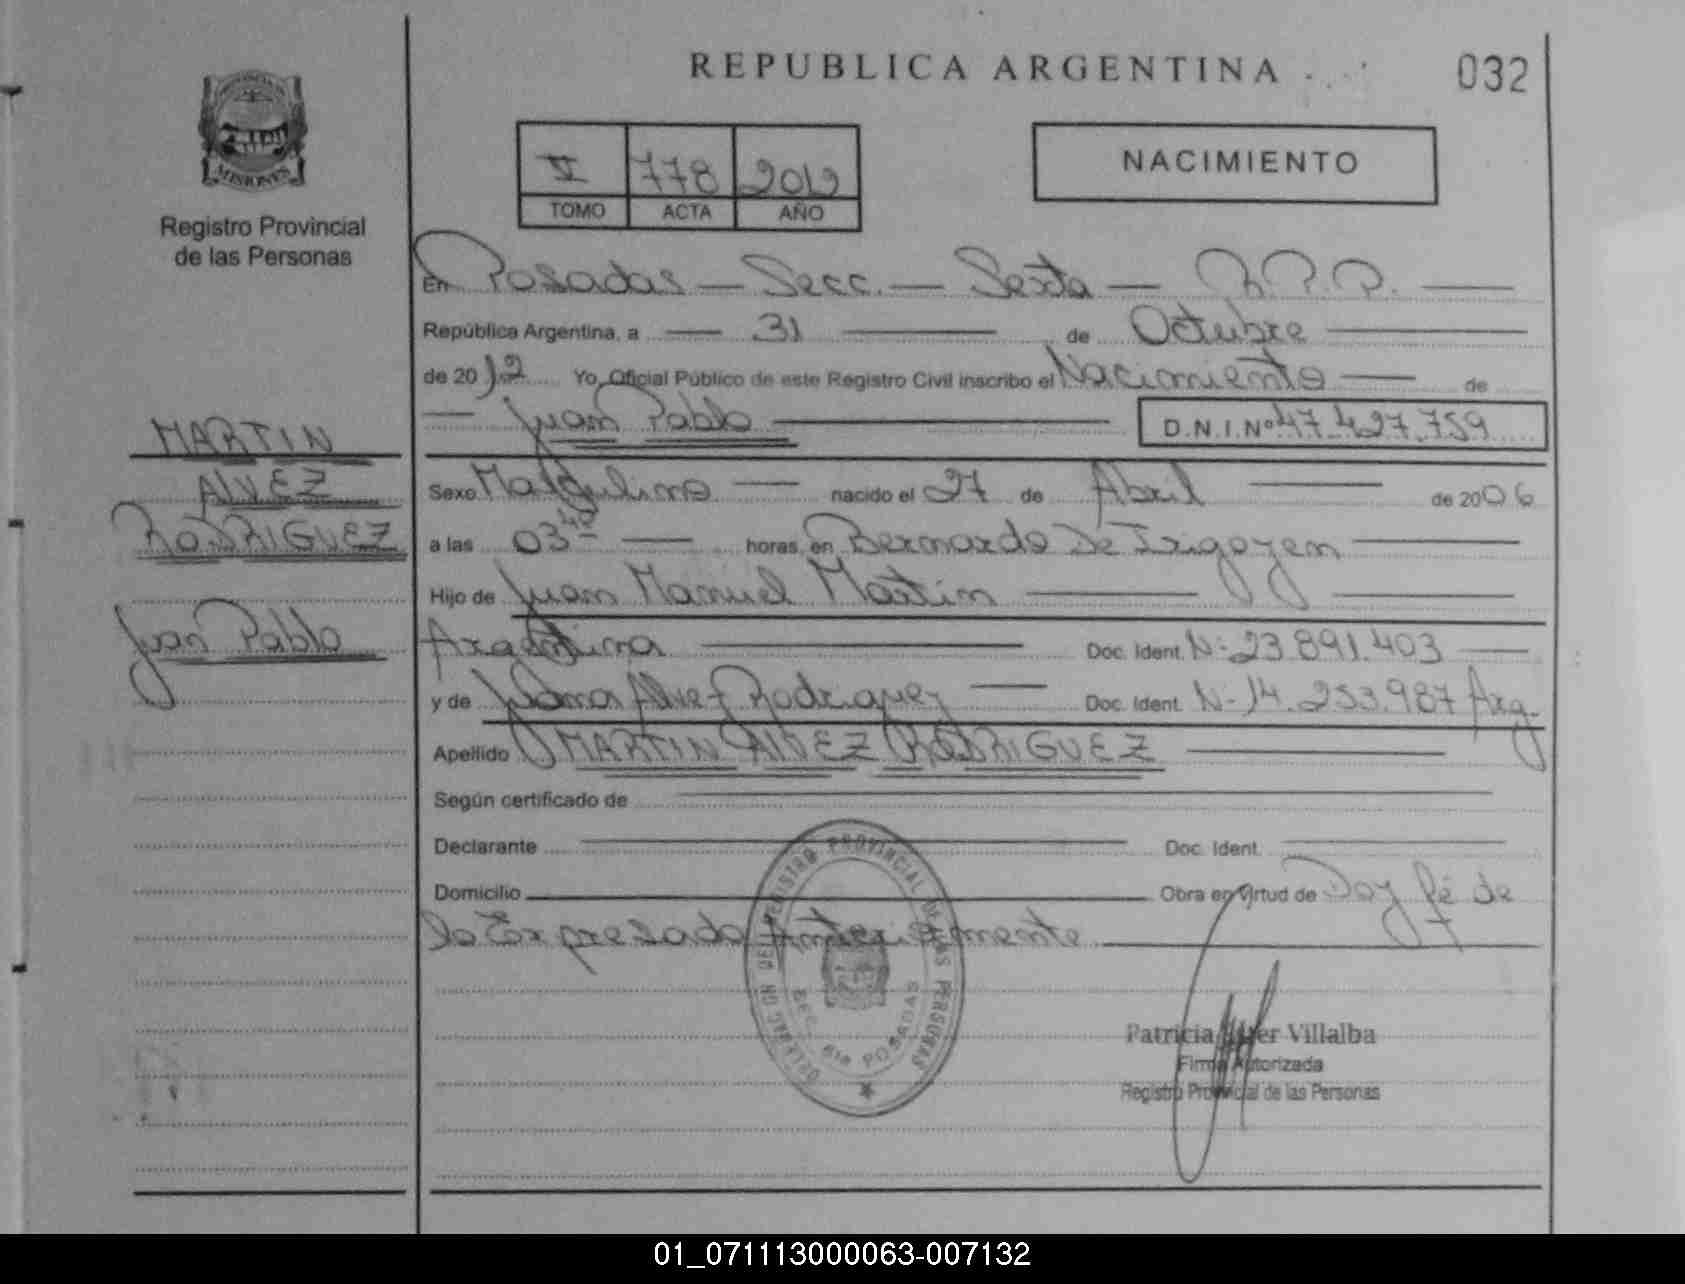 REPUBLICA ARGENTINA
032
MISIONES
Registro Provincial
de las Personas
V 778 2012
TOMO ACTA AÑO
NACIMIENTO
En Posadas — Secc. — Sexta — R.P.P. —
República Argentina, a — 31 — de Octubre —
de 2012 Yo, Oficial Público de este Registro Civil inscribo el Nacimiento — de
— Juan Pablo — D.N.I.Nº 47.427.759
MARTIN
ALVEZ
RODRIGUEZ
Juan Pablo
Sexo Masculino — nacido el 27 de Abril — de 2006
a las 03 40 — horas, en Bernardo De Irigoyen —
Hijo de Juan Manuel Martin —
Argentina — Doc. Ident. Nº 23.891.403 —
y de Alvez Rodriguez — Doc. Ident. Nº 14.253.987 Arg.
Apellido MARTIN ALVEZ RODRIGUEZ —
Según certificado de —
Declarante — Doc. Ident. —
Domicilio — Obra en virtud de Doy fé de
lo Expresado Anteriormente —
DELEGACION DE REGISTRO PROVINCIAL DE LAS PERSONAS
SEC. 6ta POSADAS
Patricia Villalba
Firma Autorizada
Registro Provincial de las Personas
01_071113000063-007132